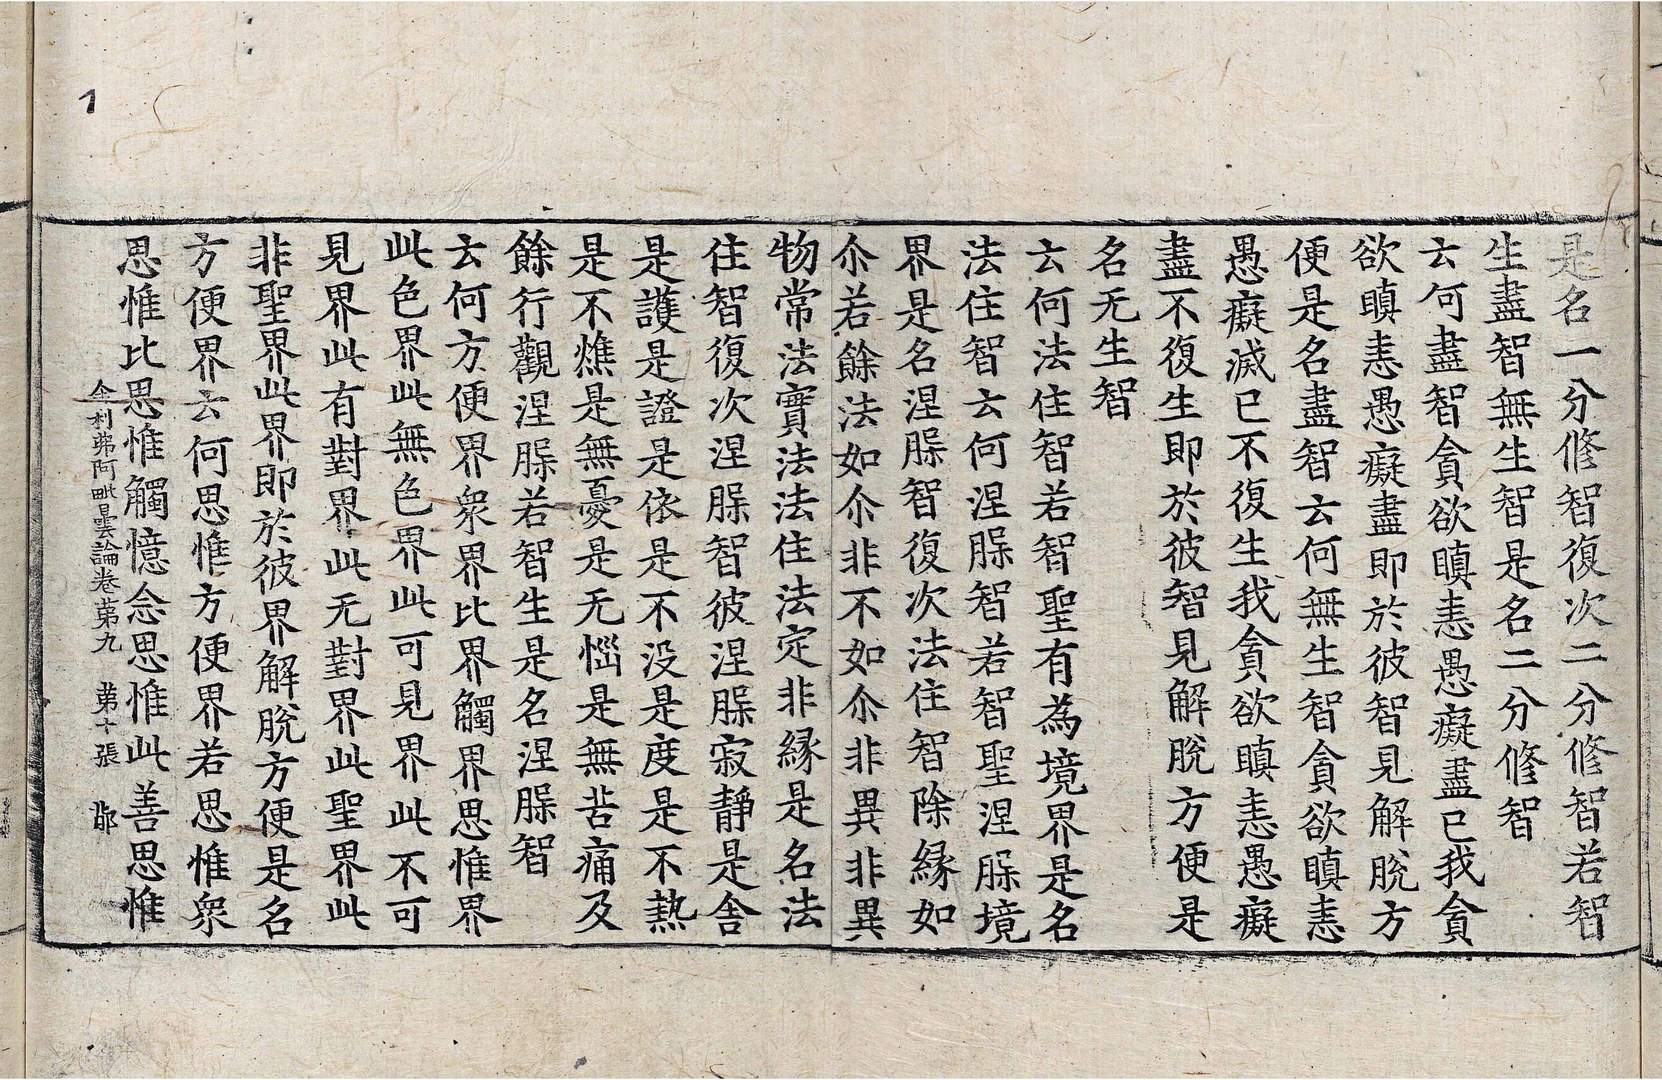 是名一分修智復次二分修智若智
生盡智無生智是名二分修智
云何盡智貪欲瞋恚愚癡盡已我貪
欲瞋恚愚癡盡即於彼智見解脫方
便是名盡智云何無生智貪欲瞋恚
愚癡滅已不復生我貪欲瞋恚愚癡
盡不復生即於彼智見解脫方便是
名无生智
云何法住智若智聖有為境界是名
法住智云何涅𣊬智若智聖涅𣊬境
界是名涅𣊬智復次法住智除緣如
尒若餘法如尒非不如尒非異非異
物常法實法法住法定非緣是名法
住智復次涅𣊬智彼涅𣊬寂靜是舍
是護是證是依是不没是度是不熱
是不燋是無憂是无惱是無苦痛及
餘行觀涅𣊬若智生是名涅𣊬智
云何方便界衆界比界觸界思惟界
此色界此無色界此可見界此不可
見界此有對界此无對界此聖界此
非聖界此界即於彼界解脫方便是名
方便界云何思惟方便界若思惟衆
思惟比思惟觸憶念思惟此善思惟
舍利弗阿毗曇論卷苐九 苐十張 鄁
1